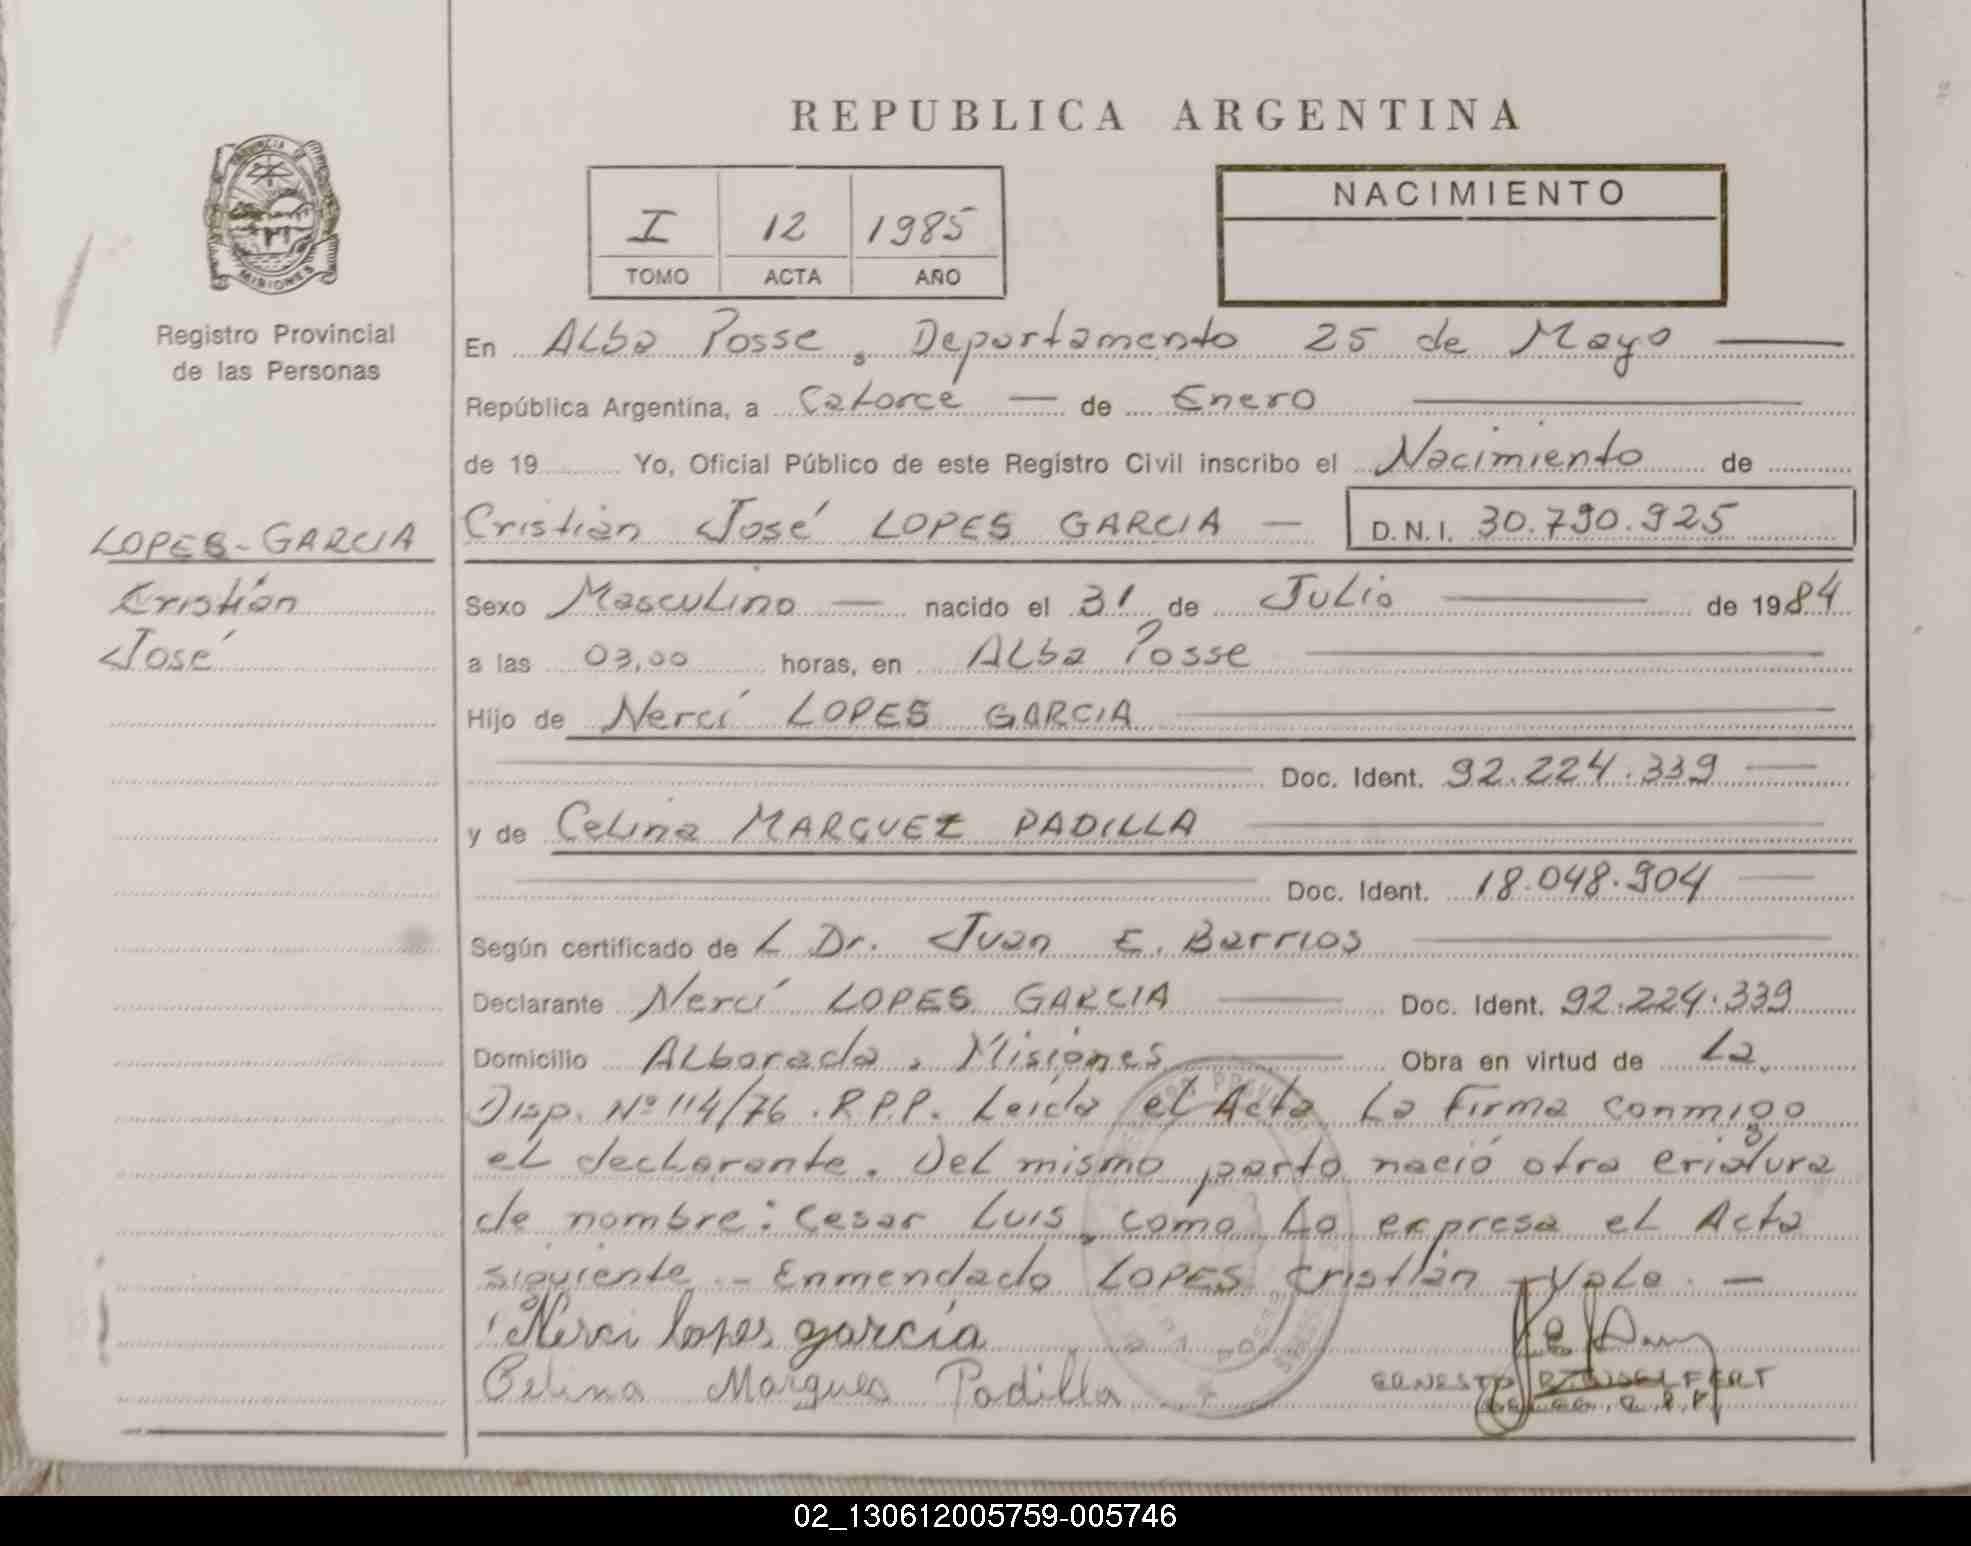 REPUBLICA ARGENTINA
PROVINCIA DE
MISIONES
Registro Provincial
de las Personas
I 12 1985
TOMO ACTA AÑO
NACIMIENTO
En Alba Posse, Departamento 25 de Mayo
República Argentina, a Catorce de Enero
de 19 Yo, Oficial Público de este Registro Civil inscribo el Nacimiento de
LOPES-GARCIA
Cristián
José
Cristián José LOPES GARCIA D.N.I. 30.790.925
Sexo Masculino nacido el 31 de Julio de 1984
a las 03,00 horas, en Alba Posse
Hijo de Nercí LOPES GARCIA
Doc. Ident. 92.224.339
y de Celina MARQUEZ PADILLA
Doc. Ident. 18.048.904
Según certificado de L Dr. Juan E. Barrios
Declarante Nercí LOPES GARCIA Doc. Ident. 92.224.339
Domicilio Alborada, Misiones Obra en virtud de La
Disp. Nº 114/76. R.P.P. Leída el Acta La Firma conmigo
el declarante. Del mismo parto nació otra criatura
de nombre: Cesar Luis, como Lo expresa el Acta
siguiente.- Enmendado LOPES Cristián - Vale. -
Nerci lopes garcía
Celina Marques Padilla
ERNESTO
02_130612005759-005746